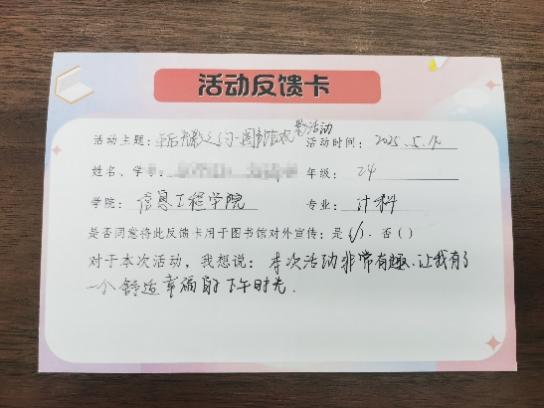 活动反馈卡
活动主题: 午后光影之约·图书馆观影活动 活动时间: 2025.5.
姓名、学 年级: 24
学院: 信息工程学院 专业: 计科
是否同意将此反馈卡用于图书馆对外宣传: 是(√). 否( )
对于本次活动, 我想说: 本次活动非常有趣.让我有了
一个舒适幸福的下午时光.